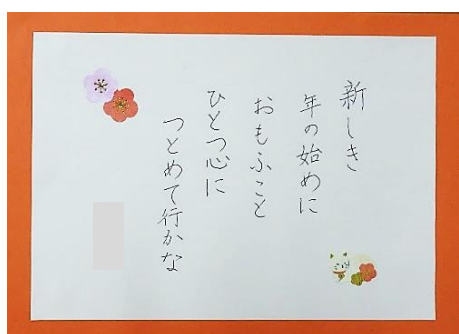 新しき
年の始めに
おもふこと
ひとつ心に
つとめて行かな